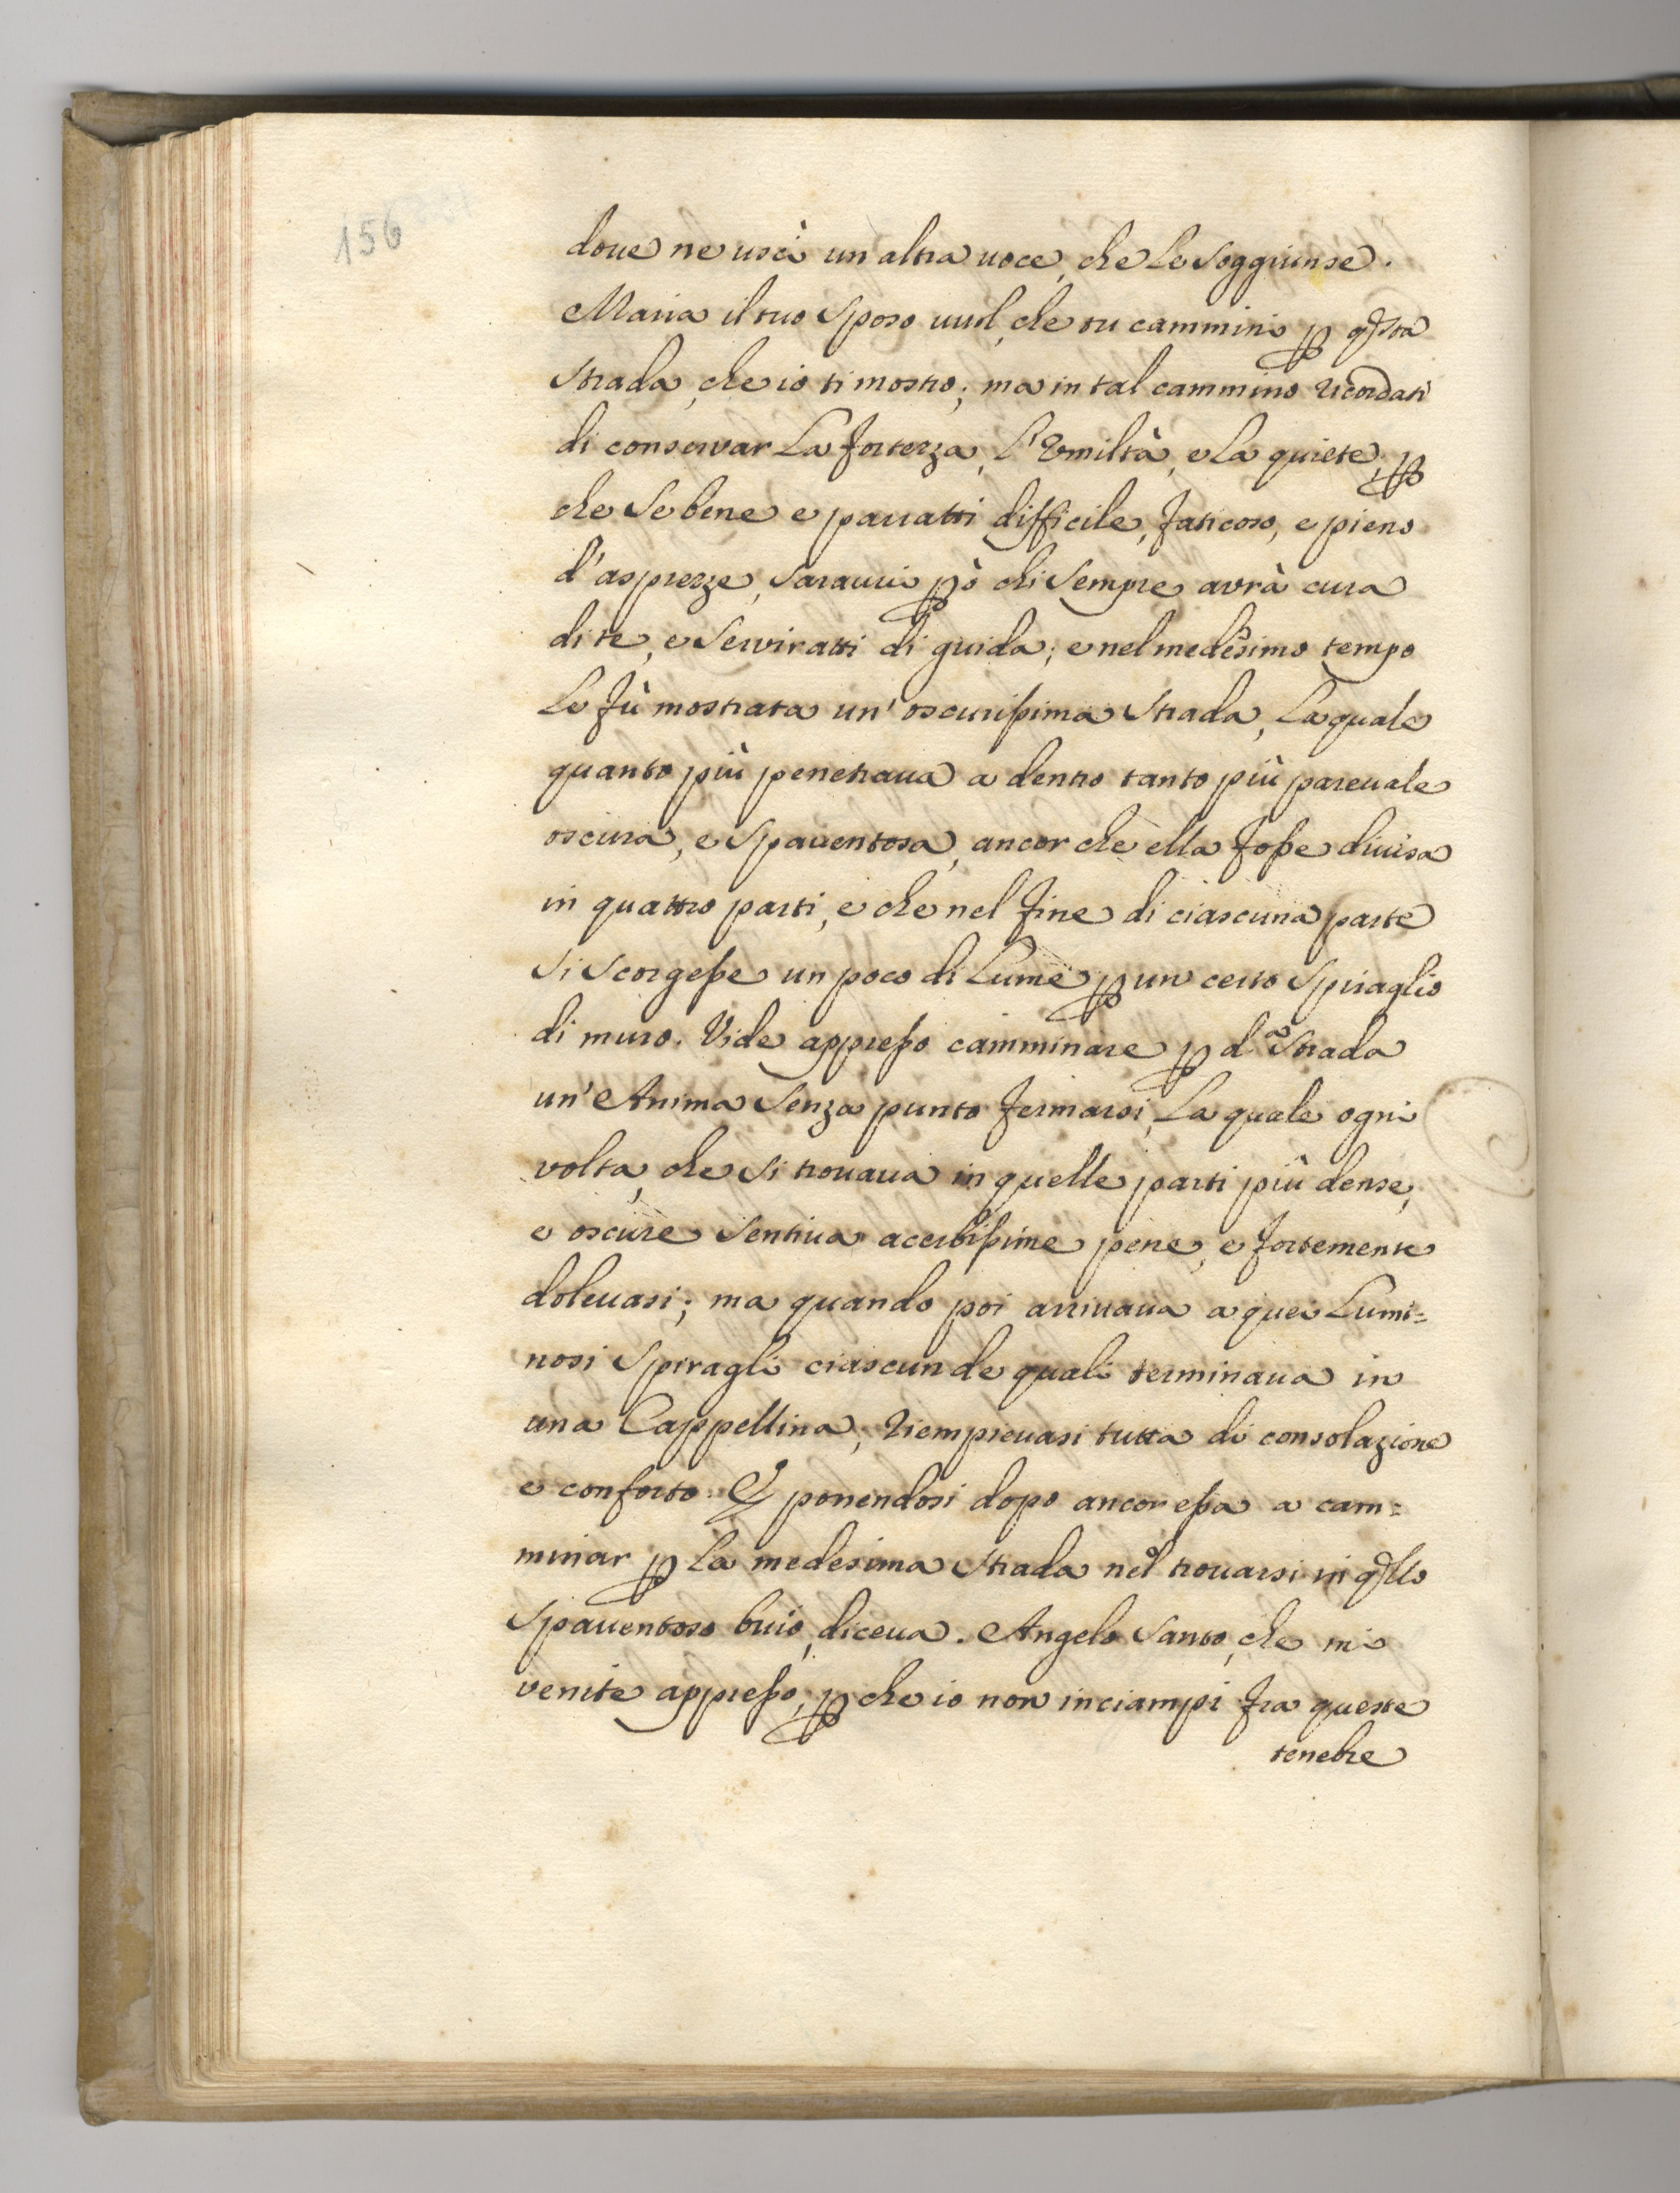 156
doue ne uscì un altra uoce, che Le soggiunse.
Maria il tuo Sposo uuol, che tu cammini p qsta
strada, che io ti mostro; ma in tal cammino ricordati
di conservar La fortezza, L'Vmiltà, e La quiete; p
che Se bene e parratti difficile, faticoso, e pieno
d'asprezze, sarauui pò chi Sempre avrà cura
di te, e Serviratti di guida; e nel medesimo tempo
Le fù mostrata un' oscurissima strada, La quale
quanto più penetraua a dentro tanto più pareuale
oscura, e Spauentosa, ancor che ella fosse diuisa
in quattro parti, e che nel fine di ciascuna parte
si scorgesse un poco di Lume p un certo Spiraglio
di muro. Vide appresso camminare p dª Strada
un' Anima Senza punto fermarsi, La quale ogni
volta, che si trouaua in quelle parti più dense,
e oscure Sentiua acerbissime pene, e fortemente
doleuasi; ma quando poi arriuaua a quei Lumi=
nosi Spiragli ciascun de quali terminaua in
una Cappellina, riempieuasi tutta di consolazione
e conforto. E ponendosi dopo ancor essa a cam=
minar p La medesima strada nel trouarsi in qllo
Spauentoso buio, diceua. Angelo Santo, che mi
venite appresso, p che io non inciampi fra queste
tenebre